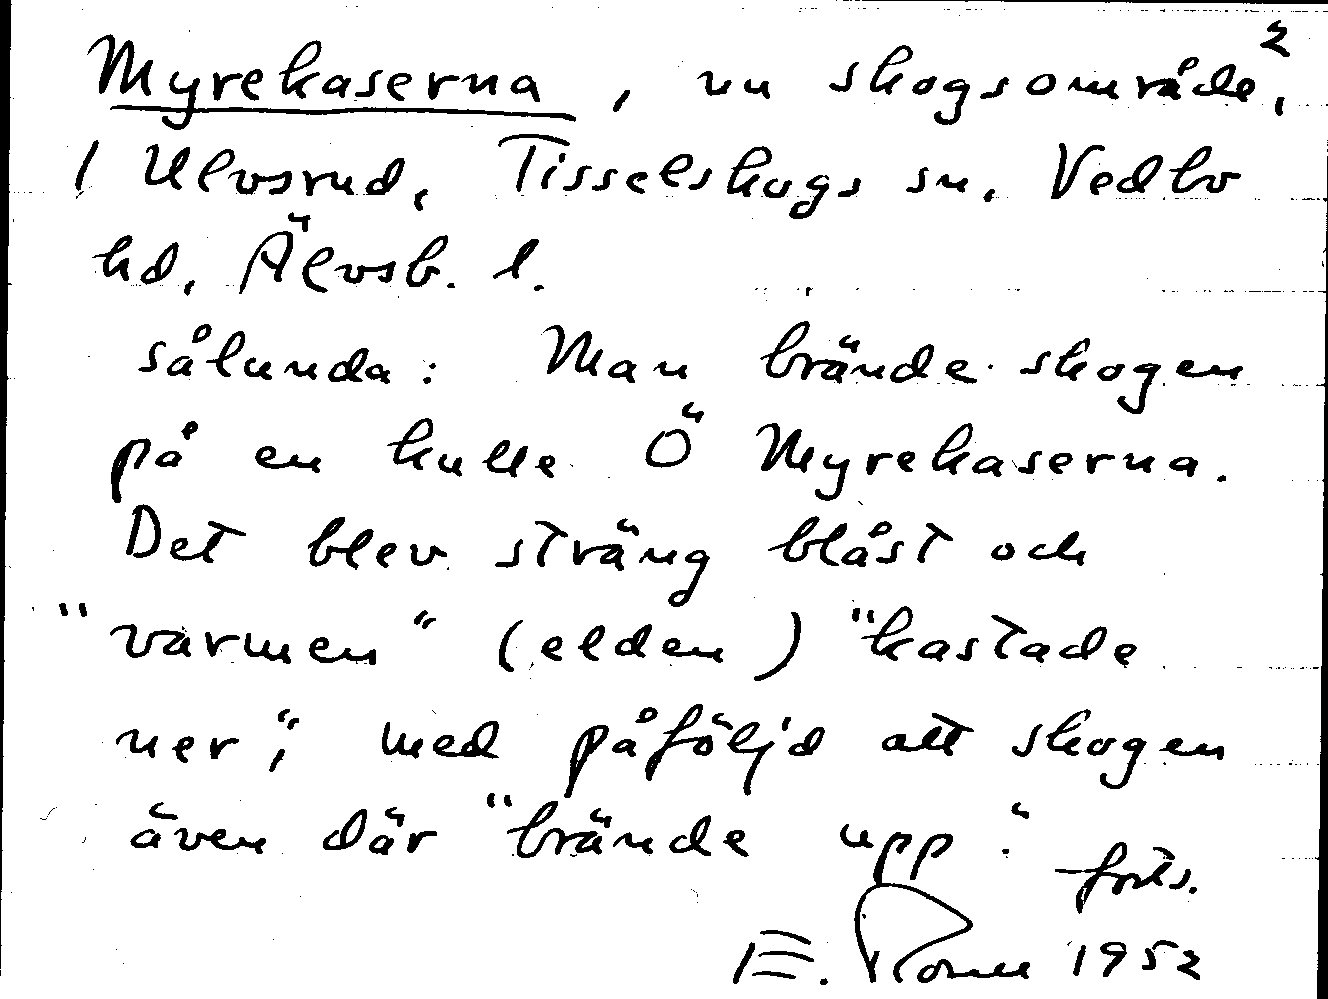 2
Myrekaserna, nu skogsområde,
1 Ulvsrud, Tisselskogs sn, Vedbo
hd, Älvsb. l.
sålunda: Man brände skogen
på en kulle Ö Myrekaserna.
Det blev sträng blåst och
"varmen" (elden) "kastade
ner", med påföljd att skogen
även där "brände upp".
forts.
E. 1952